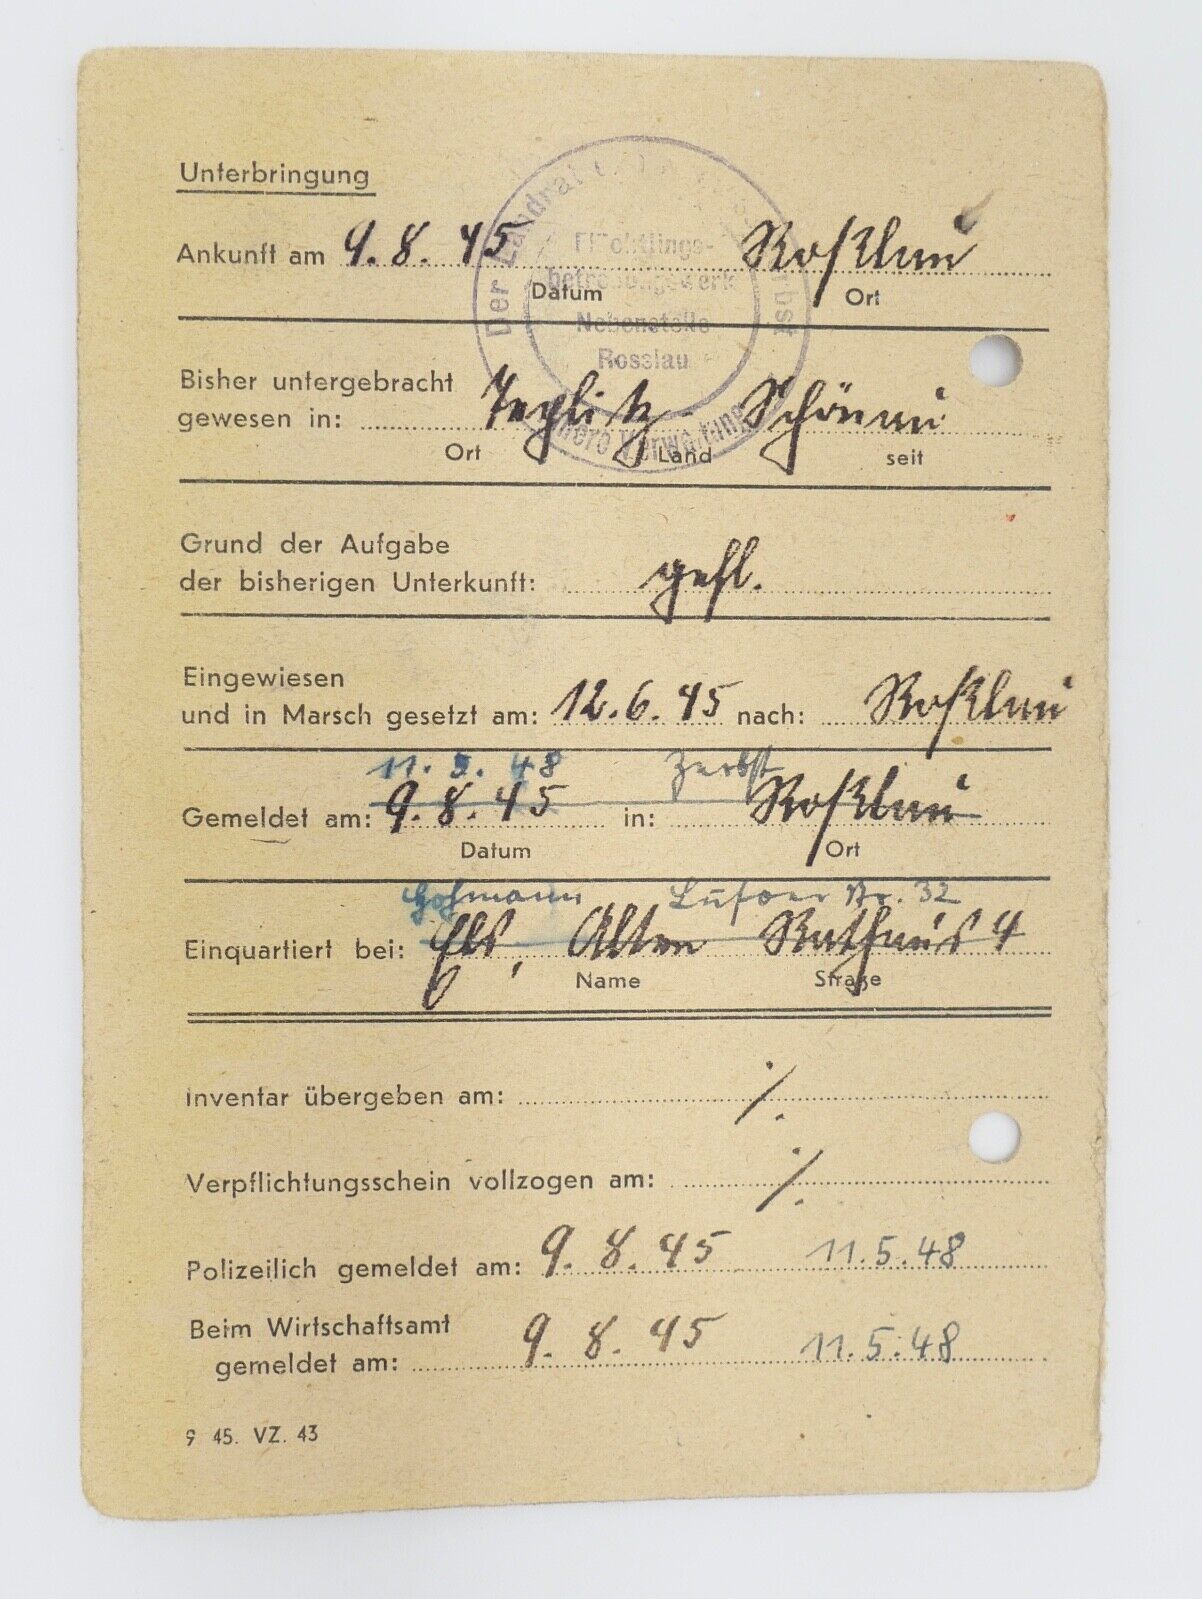 Unterbringung
Der Landrat
Flüchtlings-
betreuungswerk
Nebenstelle
Rosslau
Ankunft am 9.8.45 Roßlau
Datum Ort
Bisher untergebracht
gewesen in: Teplitz- Schönau
Ort Land seit
Grund der Aufgabe
der bisherigen Unterkunft: gefl.
Eingewiesen
und in Marsch gesetzt am: 12.6.45 nach: Roßlau
11.5.48 Zerbst
Gemeldet am: 9.8.45 in: Roßlau
Datum Ort
Hohmann Str. 32
Einquartiert bei: Alten Rathaus 4
Name Straße
Inventar übergeben am: ./.
Verpflichtungsschein vollzogen am: ./.
Polizeilich gemeldet am: 9.8.45 11.5.48
Beim Wirtschaftsamt
gemeldet am: 9.8.45 11.5.48
9 45. VZ. 43